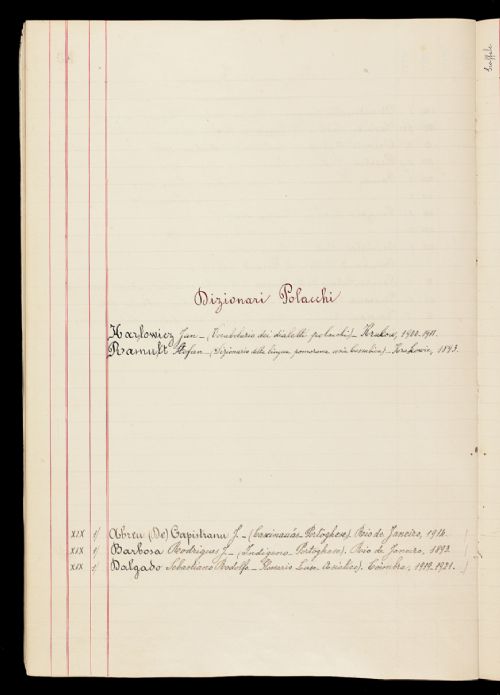 Scaffale
Dizionari Polacchi
Karłowicz Jan - (Vocabolario dei dialetti polacchi) - Krakow, 1900-1911.
Ramułt Stefan - (Dizionario della lingua pomorana, ossia Cassubica) - Krakowie, 1893.
XIX 1/ Abreu (De) Capistrano J. - (Caxinauás-Portoghese). Rio de Janeiro, 1914.
XIX 1/ Barbosa Rodrigues J. - (Indigeno - Portoghese). Rio de Janeiro, 1892.
XIX 1/ Dalgado Sebastiano Rodolfo - Glossario Luso-Asiatico). Coimbra, 1919-1921.